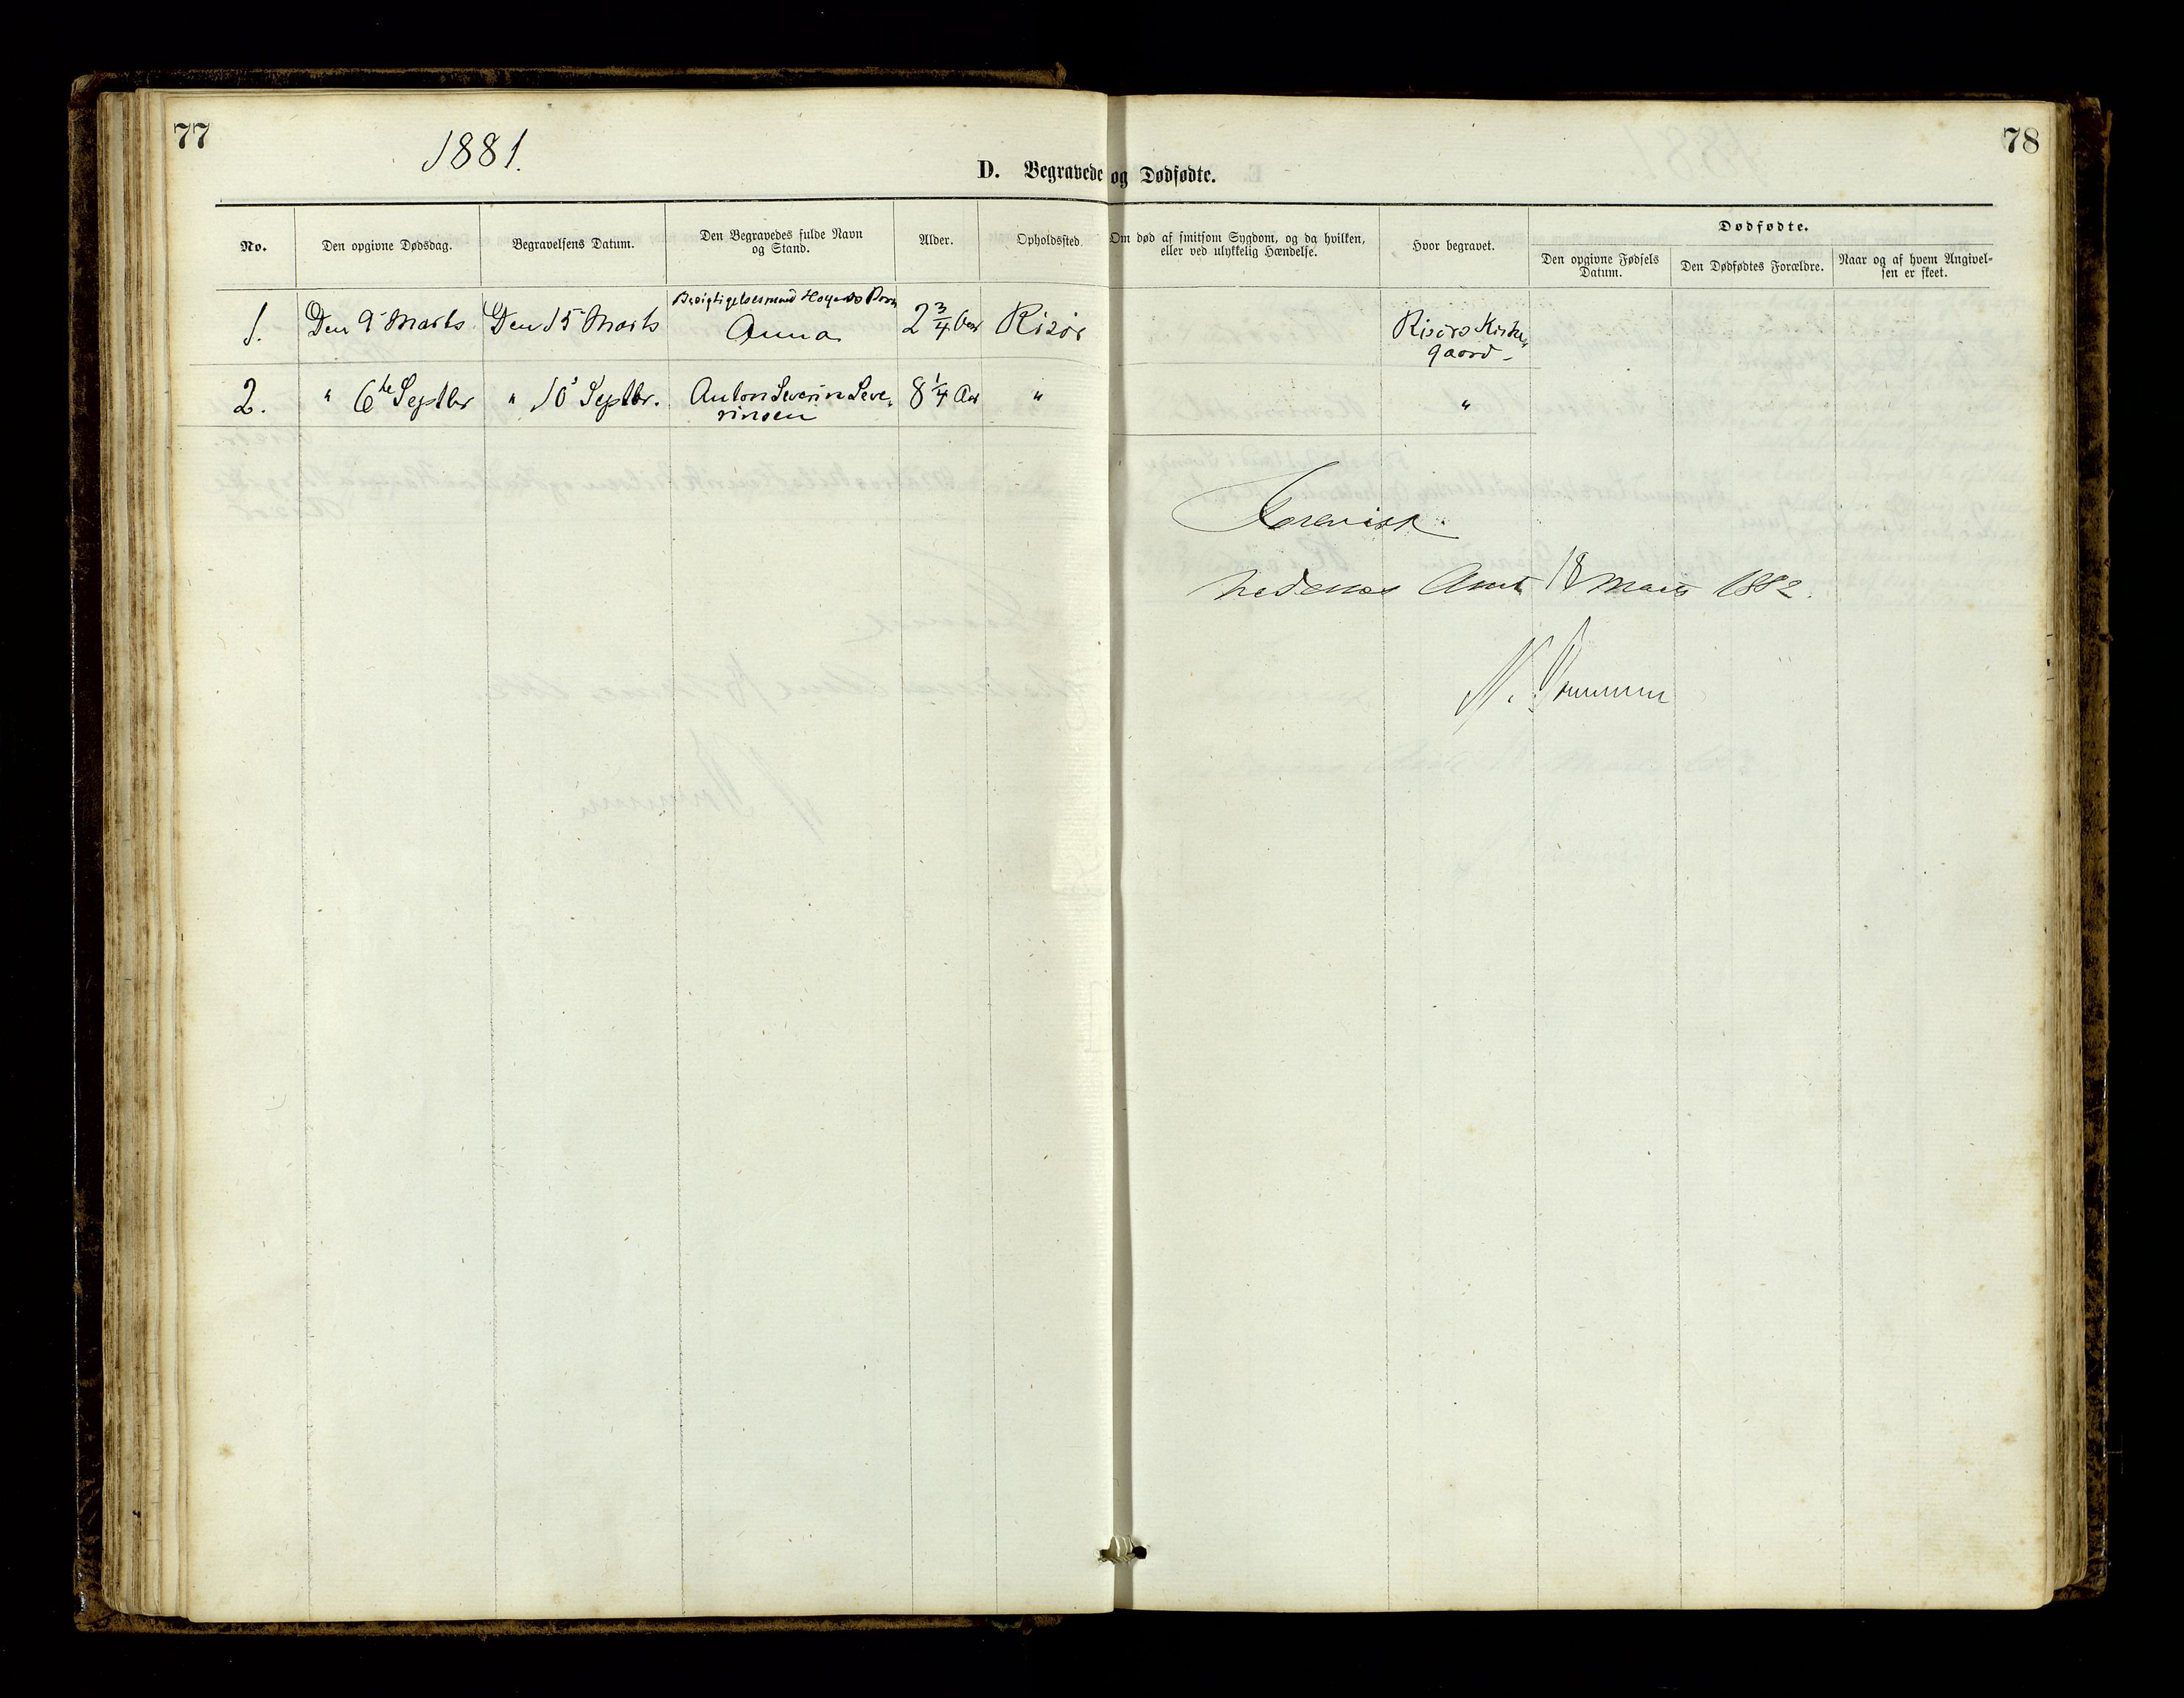 77
1881.
78
D. Begravede og Dødfødte.
No.
Den opgivne Dødsdag.
Begravelsens Datum.
Den Begravedes fulde Navn
og Stand.
Alder.
Opholdssted.
Om død af smitsom Sygdom, og da hvilken,
eller ved ulykkelig Hændelse.
Hvor begravet.
Dødfødte.
Den opgivne Fødsels
Datum.
Den Dødfødtes Forældre.
Naar og af hvem Angivel-
sen er skeet.
1.
Den 9 Marts
Den 15 Marts
Besigtigelsesmand
Anna
2 3/4 Aar
Risør
Risørs Kirke-
gaard
2.
" 6te Septbr
" 10 Septbr.
Anton Severin Seve-
rinsen
8 1/4 Aar
"
"
Forevist
Nedenes Amt 18 Marts 1882.